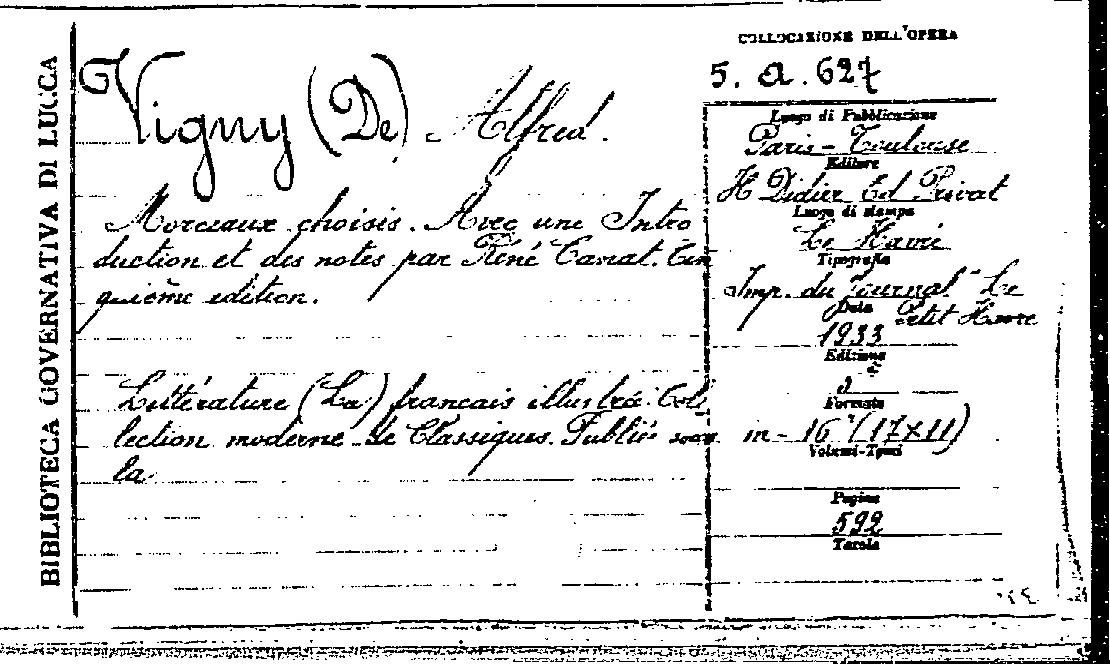 BIBLIOTECA GOVERNATIVA DI LUCCA
COLLOCAZIONE DELL'OPERA
5. a. 627
Vigny (De) Alfred.
Morceaux choisis. Avec une Intro
duction et des notes par René Canat. Cin
quième edition.
Littérature (La) francais illustrée. Col
lection moderne de Classiques. Publié sous
la
Luogo di Pubblicazione
Paris - Toulouse
Editore
H Didier Ed. Privat
Luogo di stampa
Le Havre
Tipografia
Imp. du Journal "Le
Petit Havre
Data
1933
Edizione
Formato
in - 16° (17x11)
Volumi-Tomi
Pagine
592
Tavole